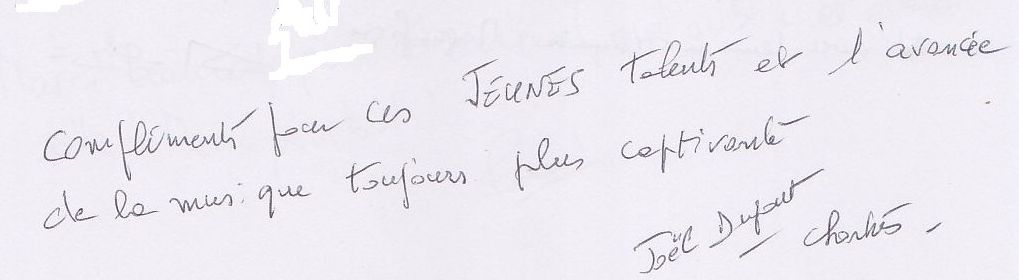 compliments pour ces JEUNES talents et l'avancée
de la musique toujours plus captivante
Joël Dupont
Chartres.